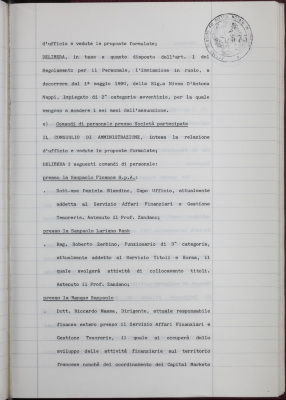 d'ufficio e vedute le proposte formulate;
DELIBERA, in base a quanto disposto dall'art. 1 del
Regolamento per il Personale, l'immissione in ruolo, a
decorrere dal 1° maggio 1990, della Sig.a Rossa D'Antona
Nappi, Impiegato di 2^ categoria avventizio, per la quale
vengono a scadere i sei mesi dall'assunzione.
Comandi di personale presso Società partecipate
IL CONSIGLIO DI AMMINISTRAZIONE, intesa la relazione
d'ufficio e vedute le proposte formulate;
DELIBERA i seguenti comandi di personale:
presso la Sanpaolo Finance S.p.A.:
. Dott.ssa Daniela Blandino, Capo Ufficio, attualmente
addetta al Servizio Affari Finanziari e Gestione
Tesoreria. Astenuto il Prof. Zandano;
presso la Sanpaolo Lariano Bank
. Rag. Roberto Sertino, Funzionario di 3^ categoria,
attualmente addetto al Servizio Titoli e Borsa, il
quale svolgerà attività di collocamento titoli.
Astenuto il Prof. Zandano;
presso la Banque Sanpaolo
. Dott. Riccardo Massa, Dirigente, attuale responsabile
finanza estero presso il Servizio Affari Finanziari e
Gestione Tesoreria, il quale si occuperà dello
sviluppo delle attività finanziarie sul territorio
francese nonché del coordinamento del Capital Markets